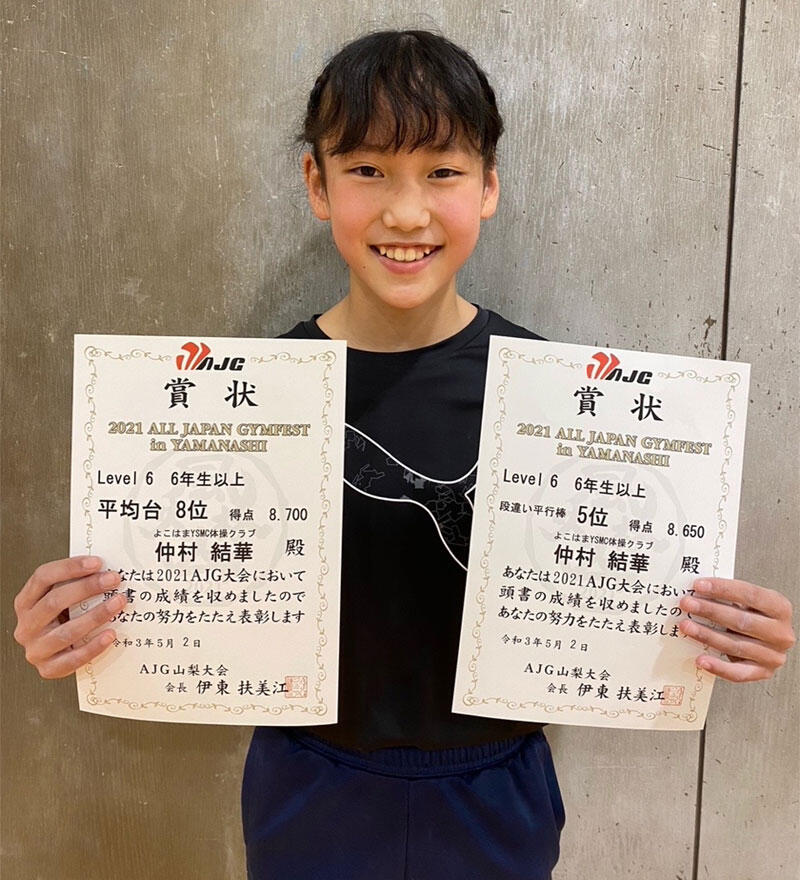 AJG
賞状
2021 ALL JAPAN GYMFEST
in YAMANASHI
Level 6 6年生以上
平均台 8位 得点 8.700
よこはまYSMC体操クラブ
仲村 結華 殿
あなたは2021AJG大会において
頭書の成績を収めましたので
あなたの努力をたたえ表彰します
令和3年5月2日
AJG山梨大会
会長 伊東 扶美江
AJG
賞状
2021 ALL JAPAN GYMFEST
in YAMANASHI
Level 6 6年生以上
段違い平行棒 5位 得点 8.650
よこはまYSMC体操クラブ
仲村 結華 殿
あなたは2021AJG大会において
頭書の成績を収めましたので
あなたの努力をたたえ表彰します
令和3年5月2日
AJG山梨大会
会長 伊東 扶美江